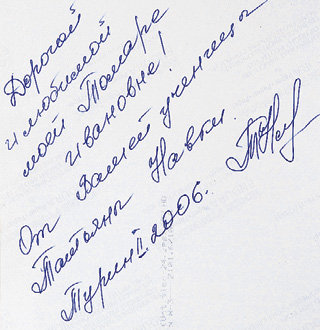 Дорогой
и любимой
моей Тамаре
Ивановне!
От Вашей ученицы
Татьяны Навки.
Турин II. 2006.